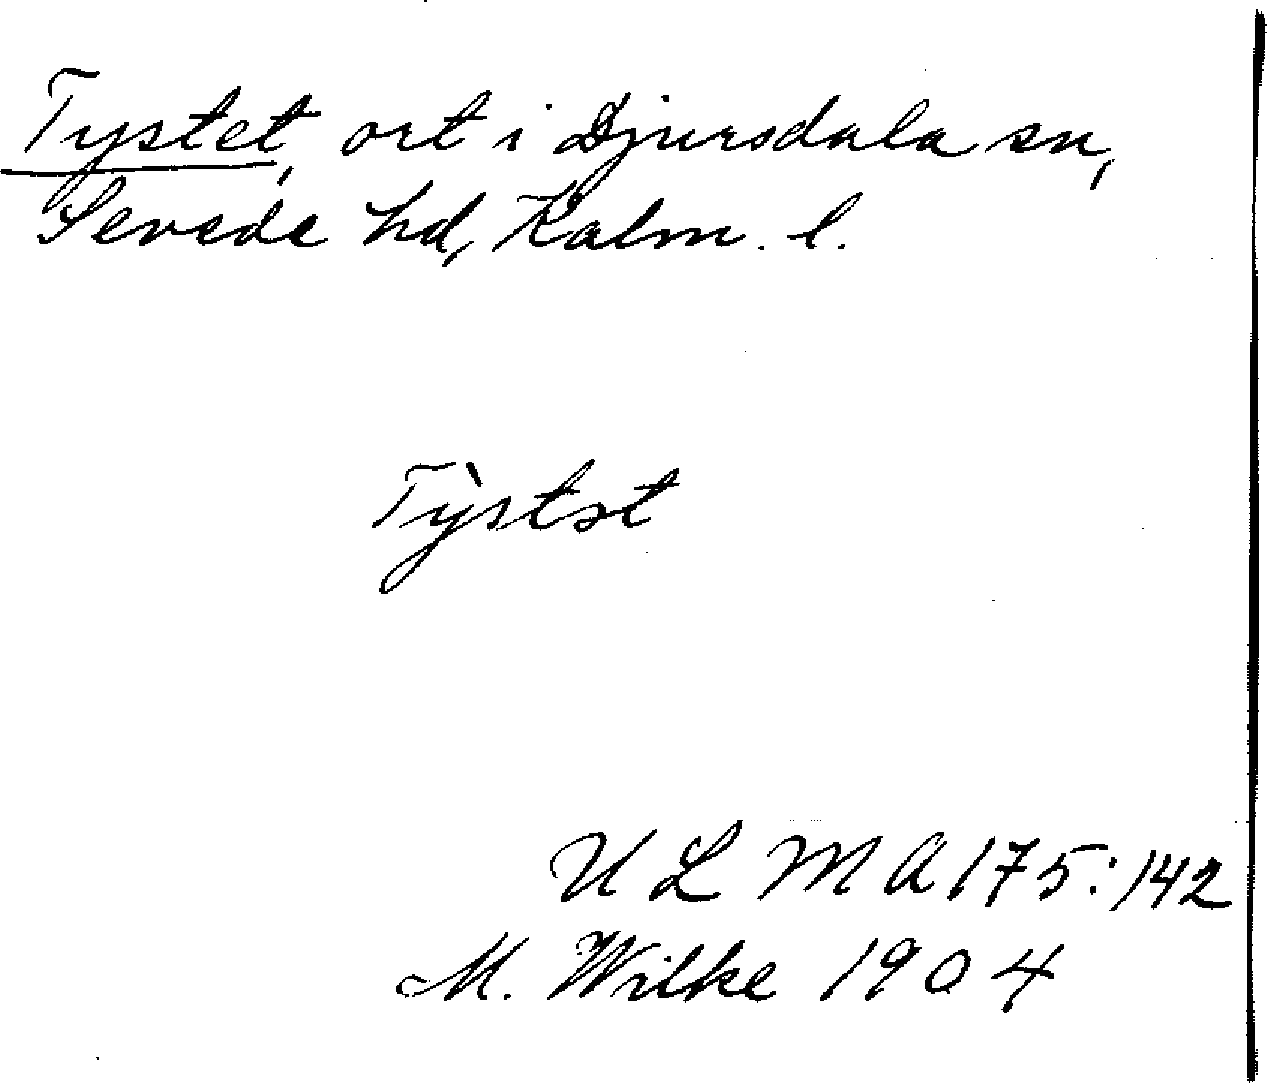 Tystet, ort i Djursdala sn,
Sevede hd, Kalm. l.
Tỳstət
ULMA 175:142
M. Wilke 1904